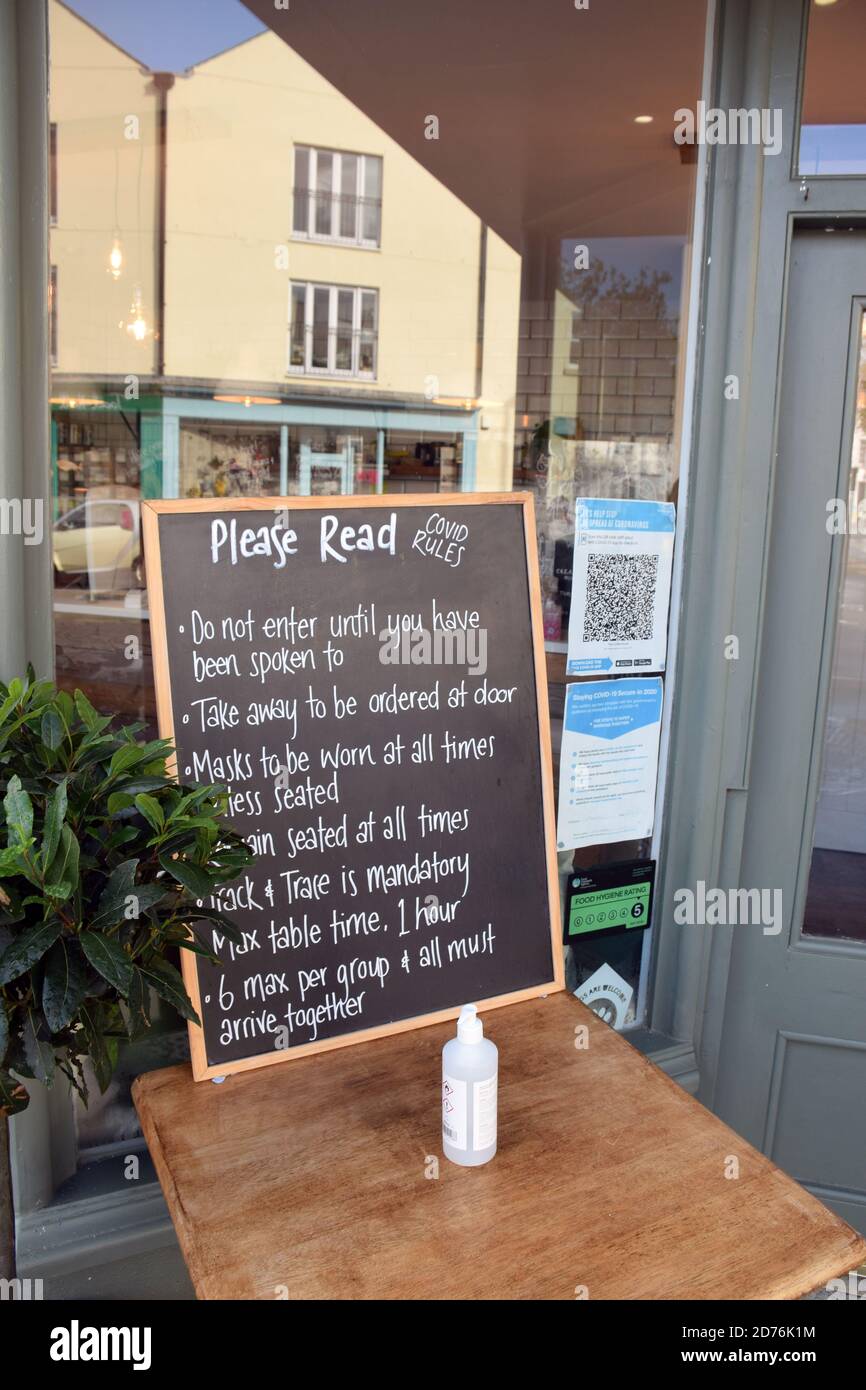 Please Read COVID RULES
• Do not enter until you have
been spoken to
• Take away to be ordered at door
• Masks to be worn at all times
less seated
ain seated at all times
• Track & Trace is mandatory
Max table time. 1 hour
• 6 max per group & all must
arrive together
SPREAD OF CORONAVIRUS
Staying COVID-19 Secure in 2020
FOOD HYGIENE RATING
0 1 2 3 4 5
ARE WELCOME
alamy
Image ID: 2D76K1M
www.alamy.com